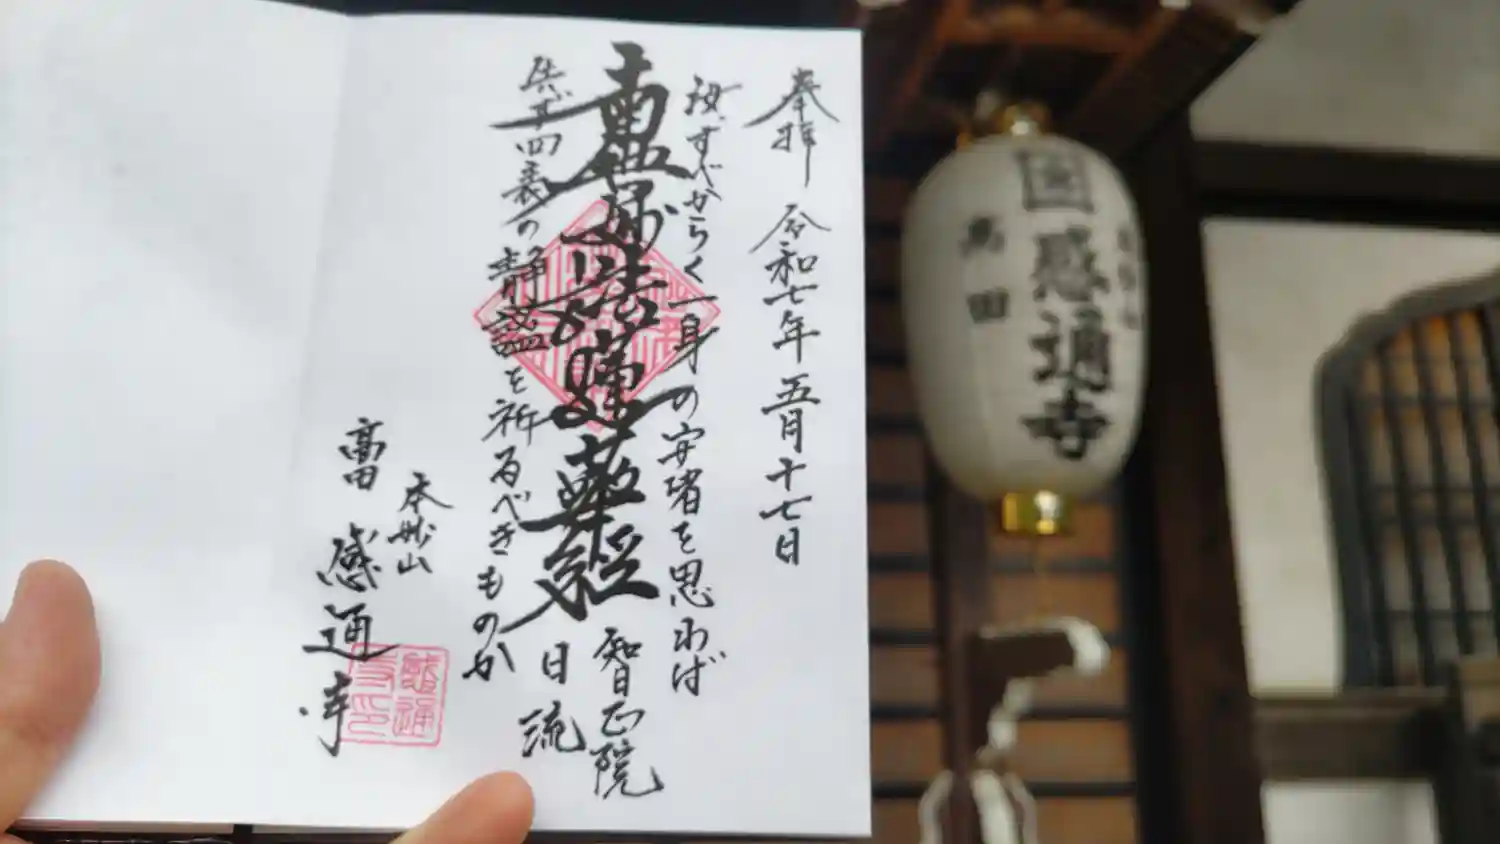 奉拝 令和七年五月十七日
汝、すべからく一身の安堵を思わば
南無妙法蓮華経
先ず四表の静謐を祈るべきものか
智正院
日流
本妙山
高田 感通寺
感通
寺印
感通寺
高田